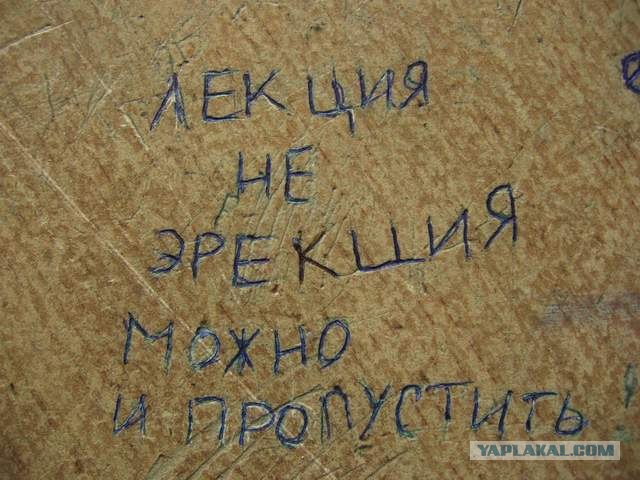 ЛЕКЦИЯ
НЕ
ЭРЕКЦИЯ
МОЖНО
И ПРОПУСТИТЬ
YAPLAKAL.COM